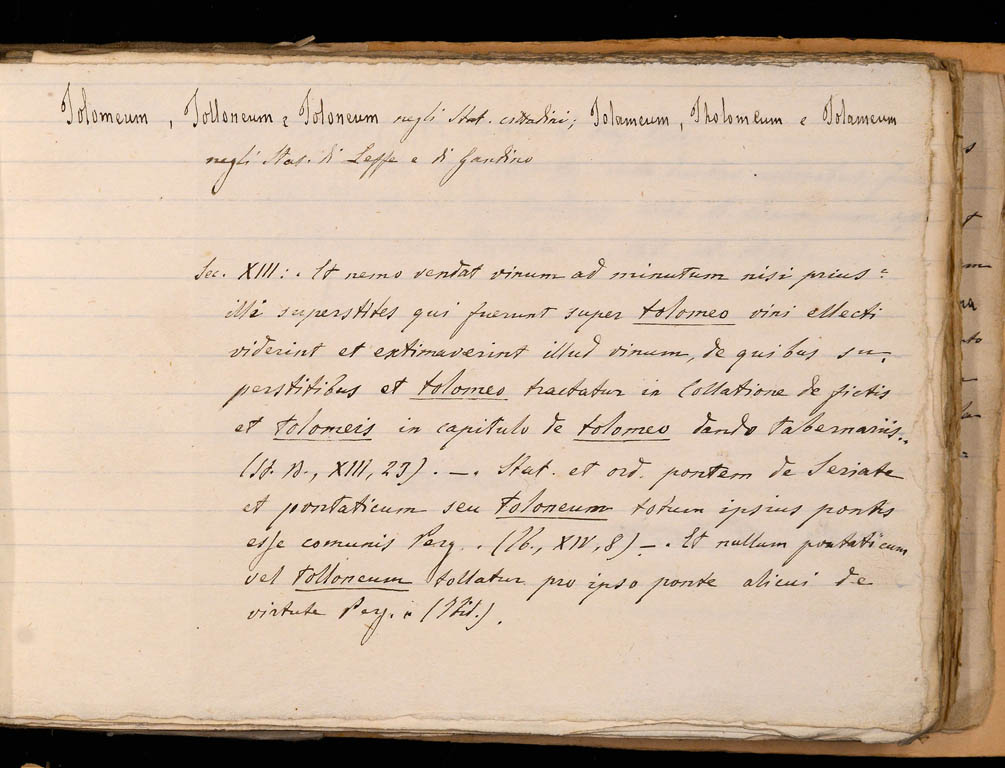 Tolomeum, Tolloneum e Toloneum negli Stat. cittadini; Tolameum, Tholomeum e Tolameum
negli Stat. di Leffe e di Gandino
Sec. XIII: „ Et nemo vendat vinum ad minutum nisi prius
illi superstites qui fuerunt super tolomeo vini ellecti
viderint et extimaverint illud vinum, de quibus su-
perstitibus et tolomeo tractatur in Collatione de fictis
et tolomeis in capitulo de tolomeo dando tabernariis„
(St. B., XIII, 23). — „ Stat. et ord. pontem de Seriate
et pontaticum seu toloneum totum ipsius pontis
esse comunis Perg. „ (Ib., XIV, 8) — „ Et nullum pontaticum
vel tolloneum tollatur pro ipso ponte alicui de
virtute Perg. „ (Ibid.).